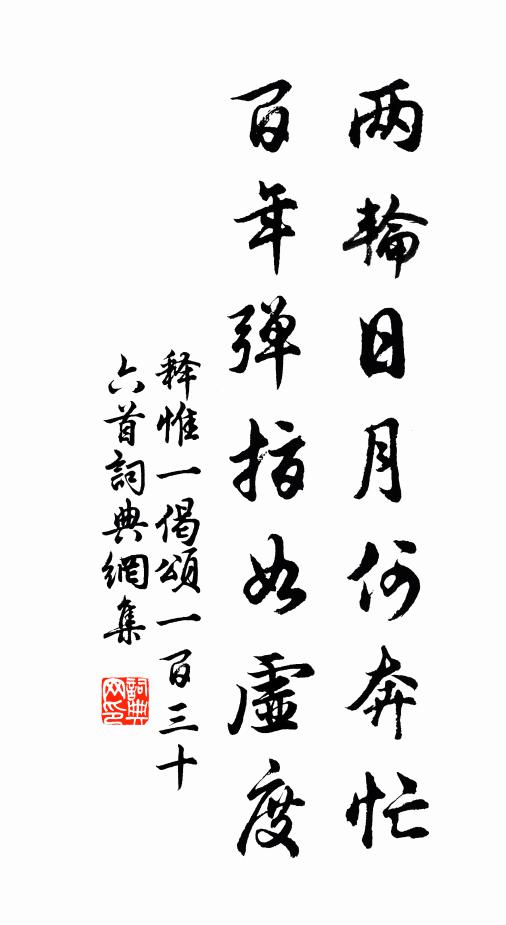 两輪日月何奔忙
百年弹指如虛度
释惟一偈頌一百三十
六首詞典網集
詞典
网印